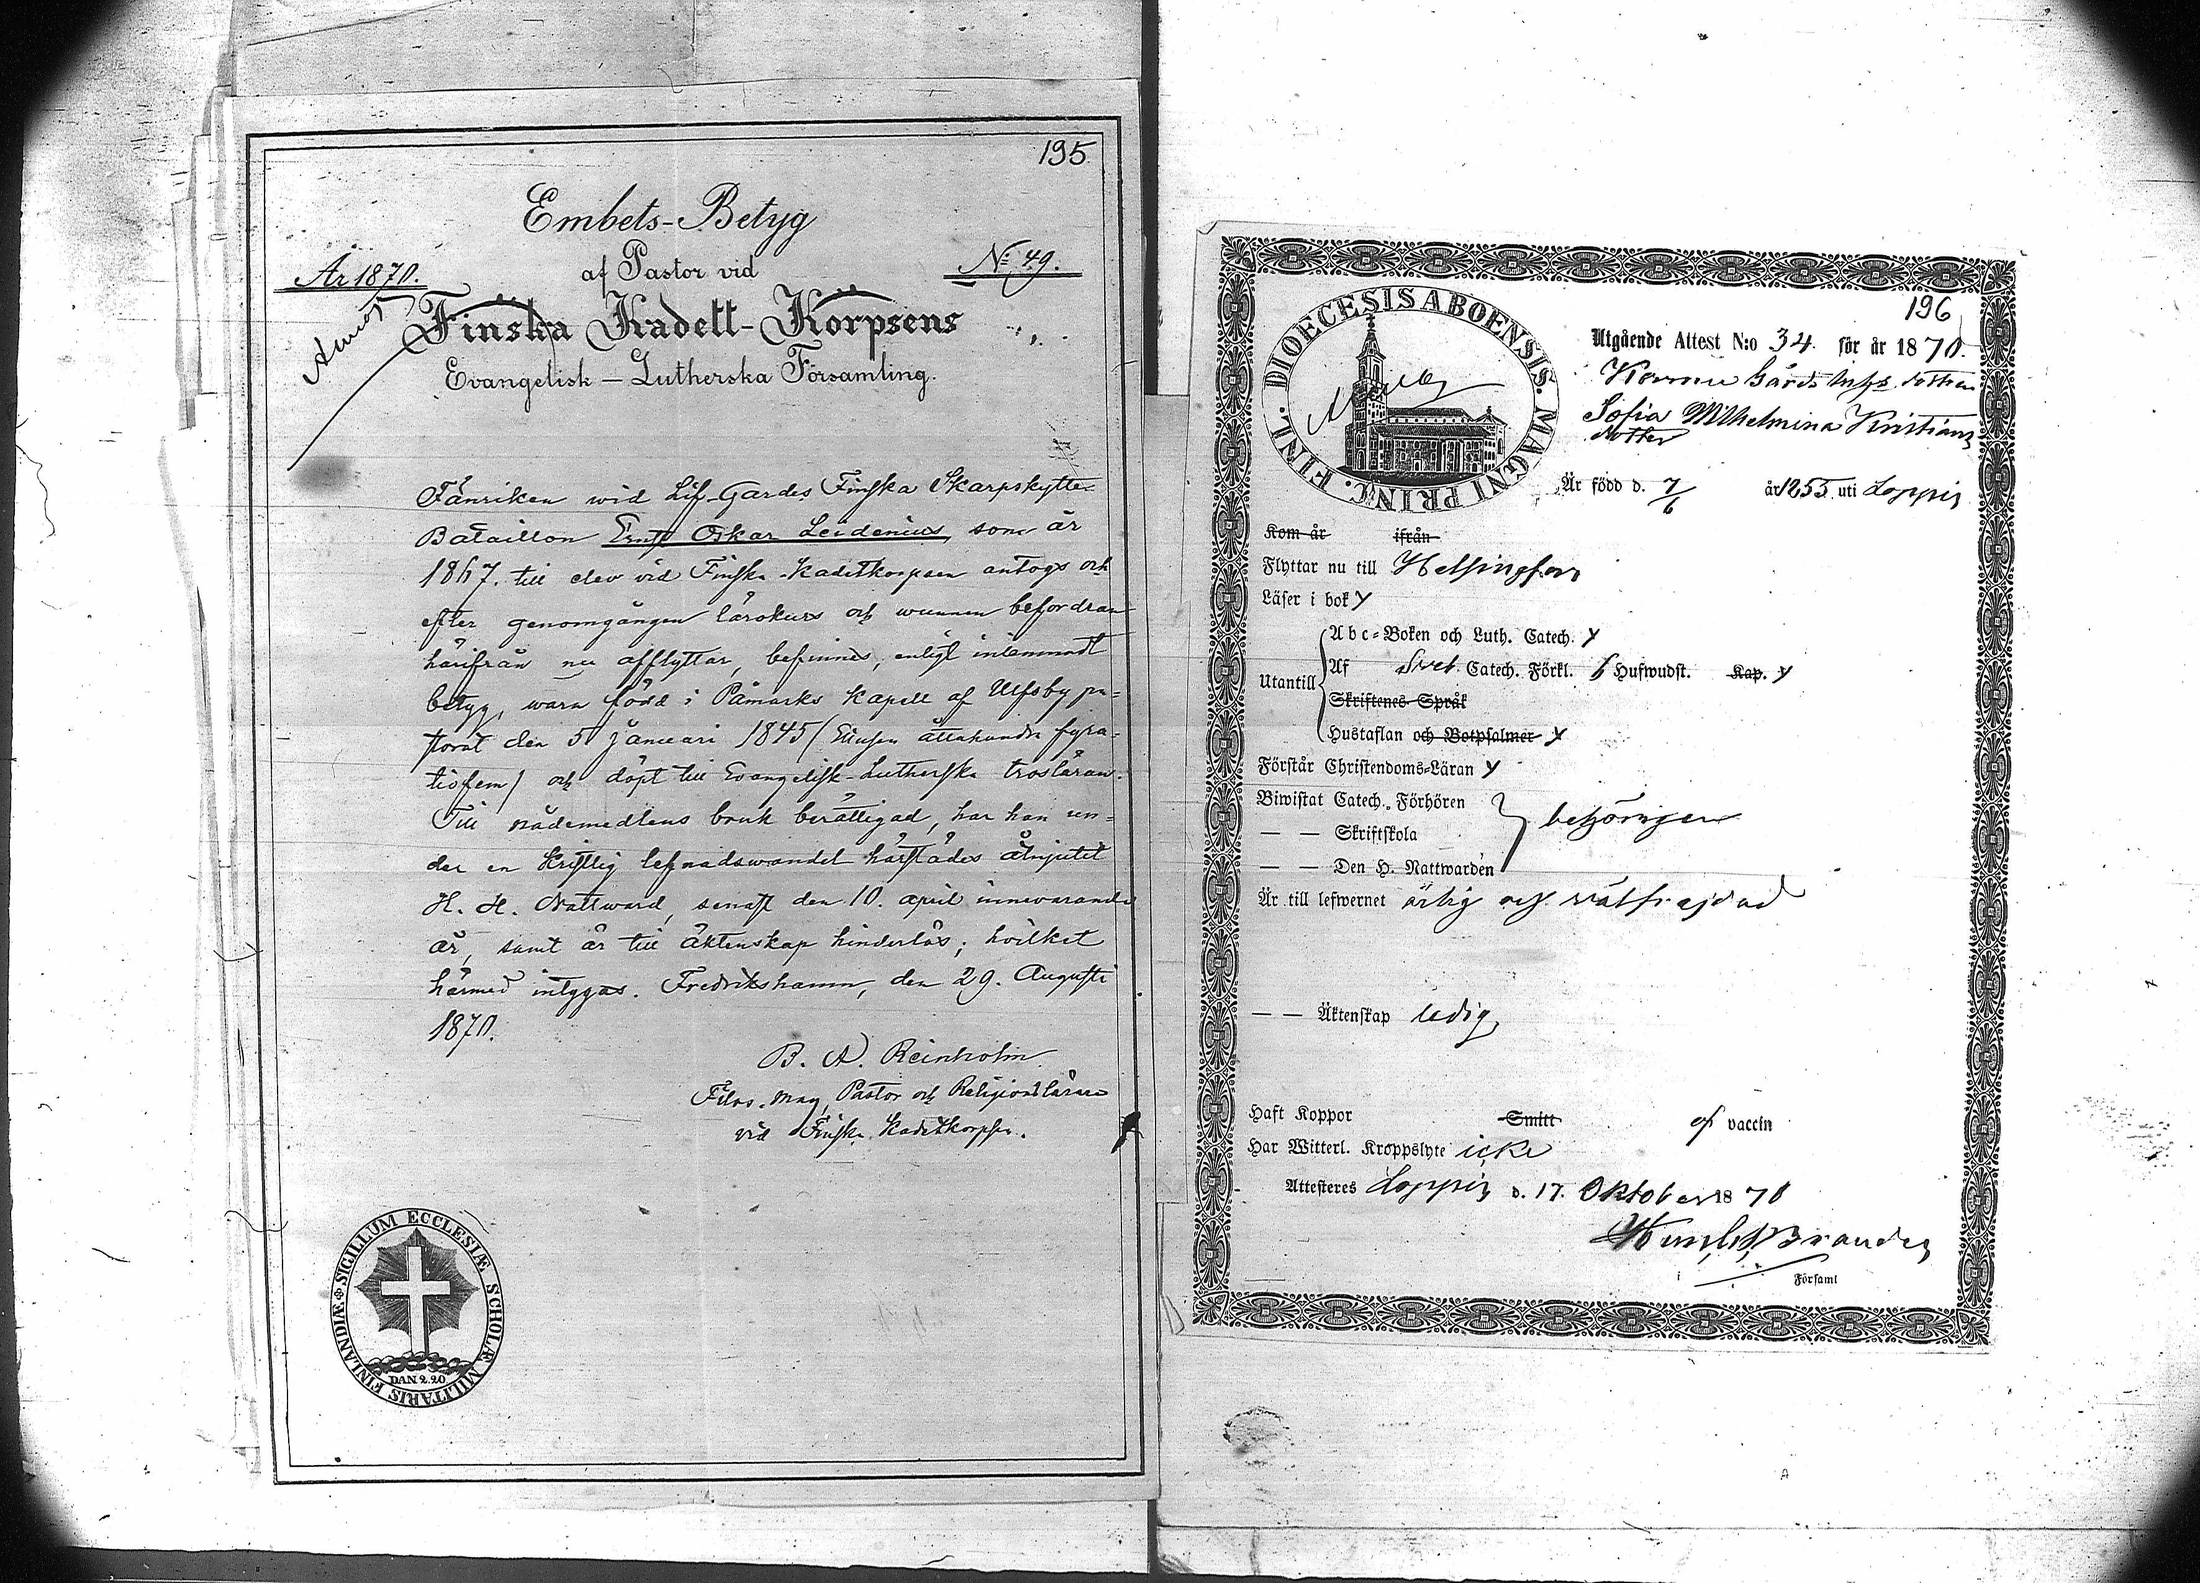 195
Embets-Betyg
af Pastor vid
År 1870.
No 49.
Finska Kadett-Korpsens
Evangelisk – Lutherska Församling.
Fänriken wid Lif-Gardes Finska Skarpskytte-
Bataillon Ernst Oskar Leidenius, som år
1867. till elev vid Finska Kadettkorpsen antogs och
efter genomgången lärokurs och wunnen befordran
härifrån nu afflyttar, befinnes, enligt inlemnadt
betyg, wara född i Påmarks Kapell af Ulfsby pa-
storat den 5 Januari 1845 (Ettusen åttahundra fyra-
tiofem) och döpt till Evangelisk-Lutherska trosläran.
Till nådemedlens bruk berättigad, har han un-
der en kristlig lefnadswandel härstädes åtnjutit
H. H. Nattward, senast den 10. april innewarande
år, samt är till äktenskap hinderlös; hvilket
härmed intygas. Fredrikshamn, den 29. Augusti
1870.
B. A. Reinholm
Filos. Mag, Pastor och Religionslärare
vid Finska Kadettkorpsen.
SIGILLUM ECCLESIÆ SCHOLÆ MILITARIS FINLANDIÆ
DAN. 2.20
196
DIOECESIS ABOENSIS. MAGNI PRINC. FINL.
Utgående Attest N:o 34. för år 1870.
Gårds dottren
Sofia Wilhelmina Kristians
dotter
Är född d. 7/6 år 1855 uti Loppis
Kom år ifrån
Flyttar nu till Helsingfors
Läser i bok y
Utantill
Abc-Boken och Luth. Catech. y
Af Sveb. Catech. Förkl. 6 Hufwudst. Kap. y
Skriftenes Språk
Hustaflan och Botpsalmer y
Förstår Christendoms-Läran y
Biwistat Catech. Förhören
— — Skriftskola
behörigen
— — Den H. Nattwarden
Är till lefwernet ärlig och rätfrejdad
— — Äktenskap ledig
Haft Koppor Smitt af vaccin
Har Witterl. Kroppslyte icke
Attesteres Loppis d. 17. Oktober 1870
Brander
Församl